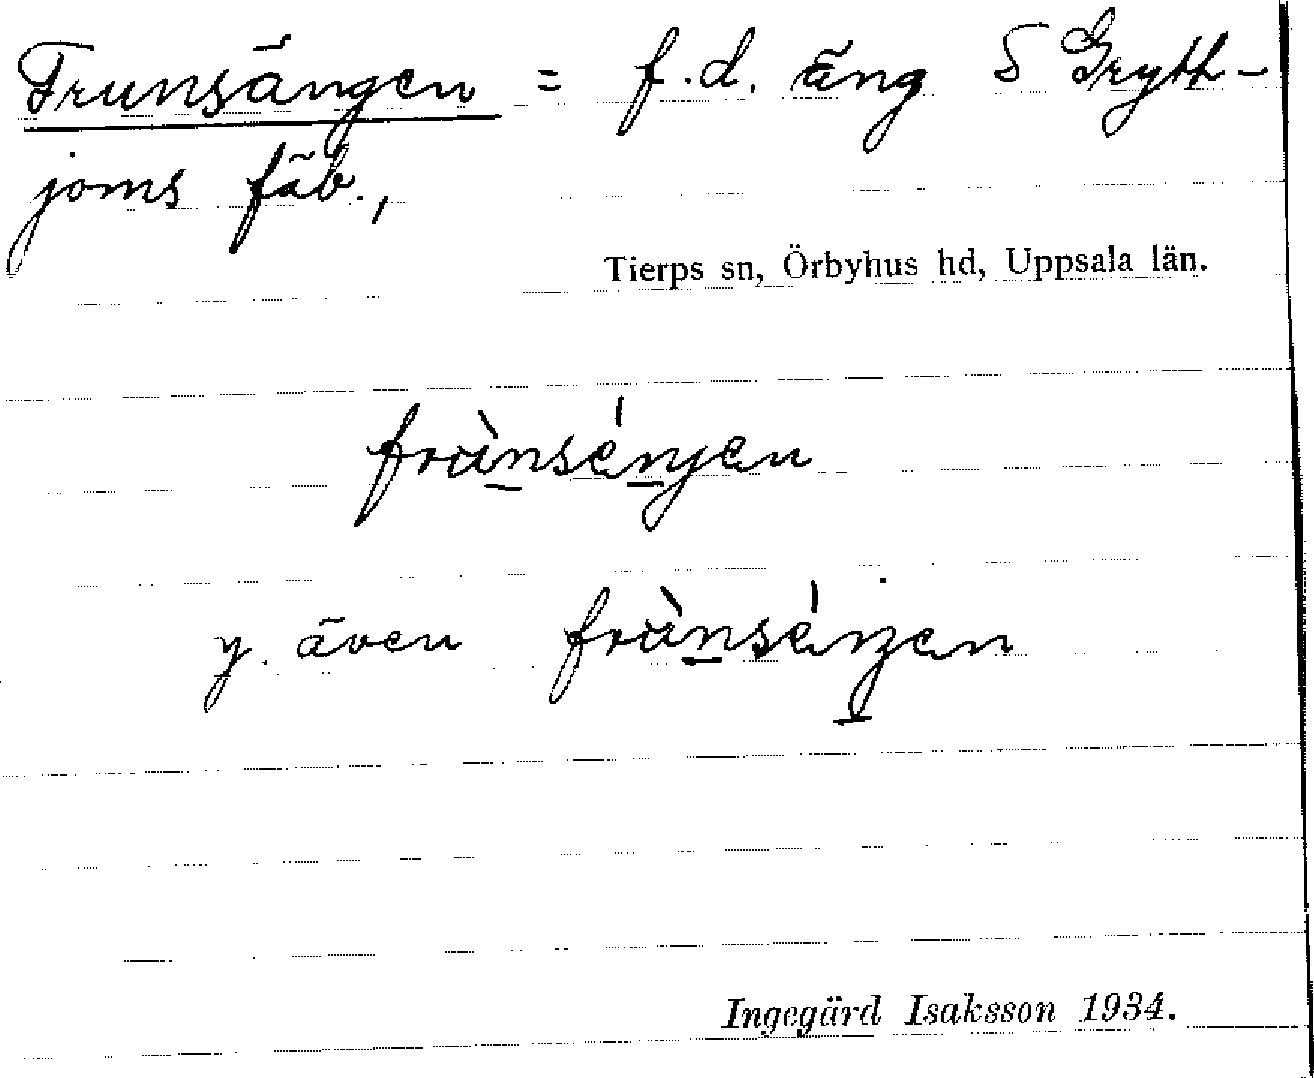 Frunsängen = f.d. äng S Gryth-
joms fäb.,
Tierps sn, Örbyhus hd, Uppsala län.
frùnsénjen
y. även frùnséŋen
Ingegärd Isaksson 1934.